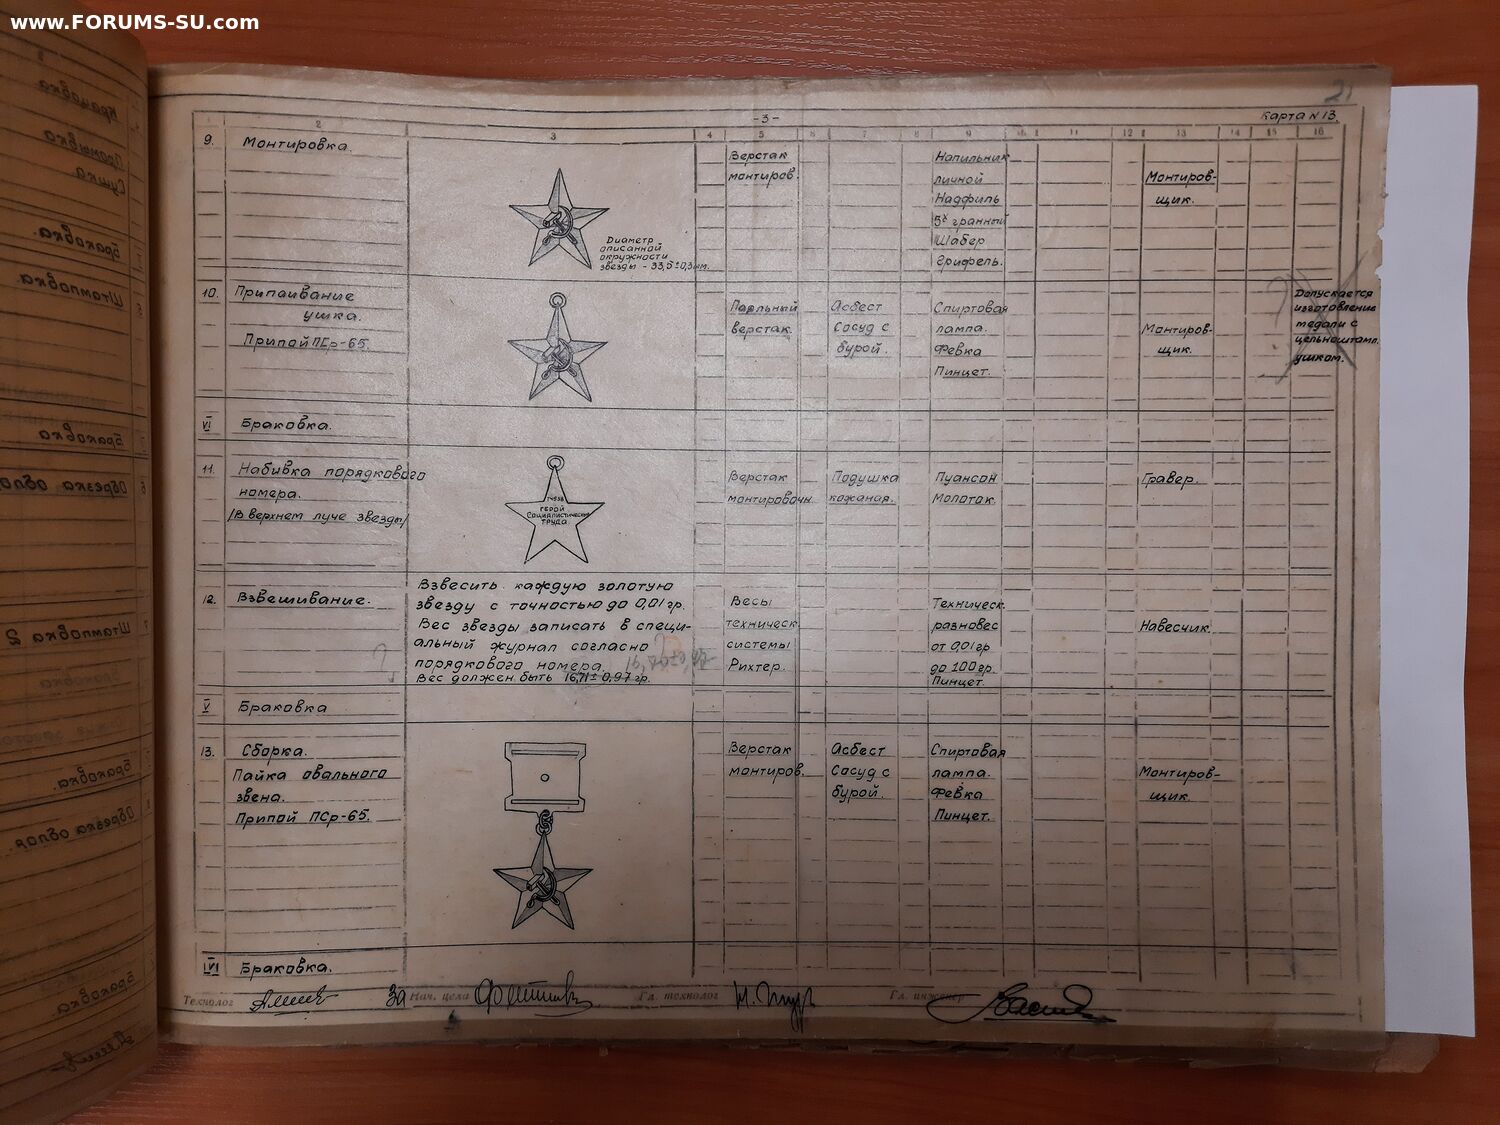 www.FORUMS-SU.com
21
-3-
Карта №13.
2 3 4 5 6 7 8 9 10 11 12 13 14 15 16
9. Монтировка.
Диаметр
описанной
окружности
звезды - 33,5±0,3мм.
Верстак
монтиров.
Напильник
личной
Надфиль
5х гранный
Шабер
Грифель.
Монтиров-
щик.
10. Припаивание
ушка.
Припой ПСр-65.
Паяльный
верстак.
Асбест
Сосуд с
бурой.
Спиртовая
лампа.
Февка
Пинцет.
Монтиров-
щик.
Допускается
изготовление
медали с
цельноштамп.
ушком.
VI Браковка.
11. Набивка порядкового
номера.
/В верхнем луче звезды/
ГЕРОЙ
Социалистического
ТРУДА.
Верстак
монтировочн.
Подушка
кожаная.
Пуансон
Молоток.
Гравер.
12. Взвешивание.
Взвесить каждую золотую
звезду с точностью до 0,01 гр.
Вес звезды записать в специ-
альный журнал согласно
порядкового номера.
Вес должен быть 16,71±0,97 гр.
Весы
техническ.
системы
Рихтер.
Техническ.
разновес
от 0,01 гр
до 100 гр.
Пинцет.
Навесчик.
V Браковка
13. Сборка.
Пайка овального
звена.
Припой ПСр-65.
Верстак
монтиров.
Асбест
Сосуд с
бурой.
Спиртовая
лампа.
Февка
Пинцет.
Монтиров-
щик.
VI Браковка.
Технолог За Нач. цеха Гл. технолог Гл. инженер